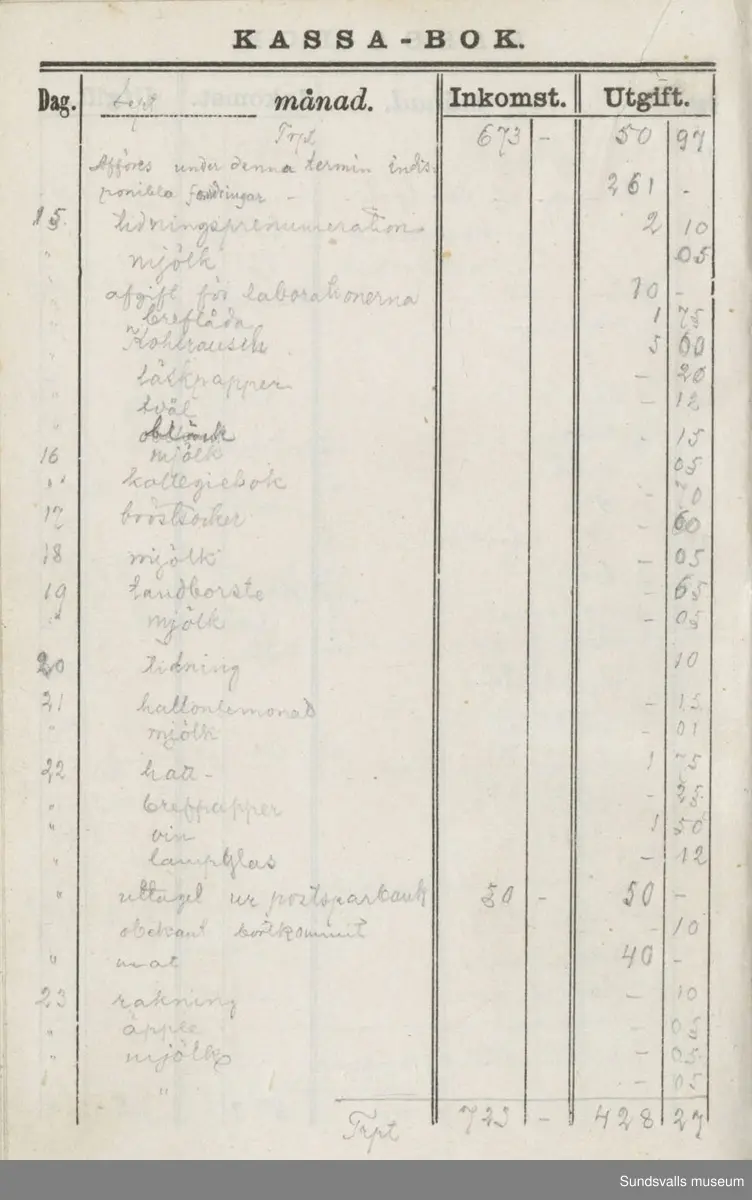 KASSA-BOK.
Dag. sept månad. Inkomst. Utgift.
Trpt 673 - 50 97
Afföres under denna termin indis-
ponibla fordringar - 261 -
15. tidningsprenumeration 2 10
" mjölk 05
afgift för laborationerna 10 -
breflåda 1 75
" Kohlrausch 5 60
läskpapper - 20
" tvål - 12
" - 15
16 mjölk 05
" kollegiebok -
17 bröstsocker - 60
18 mjölk - 05
19 tandborste - 65
" mjölk - 05
20 tidning 10
21 hallonlemonad - 15
" mjölk - 01
22 hatt - 1 75
" brefpapper - 25
" vin 1 50
" lampglas - 12
" uttaget ur postsparbank 50 - 50 -
obekant bortkommit - 10
" mat 40 -
23 rakning - 10
" äpple - 05
" mjölk - 05
" - 05
Trpt 723 - 428 27
Sundsvalls museum